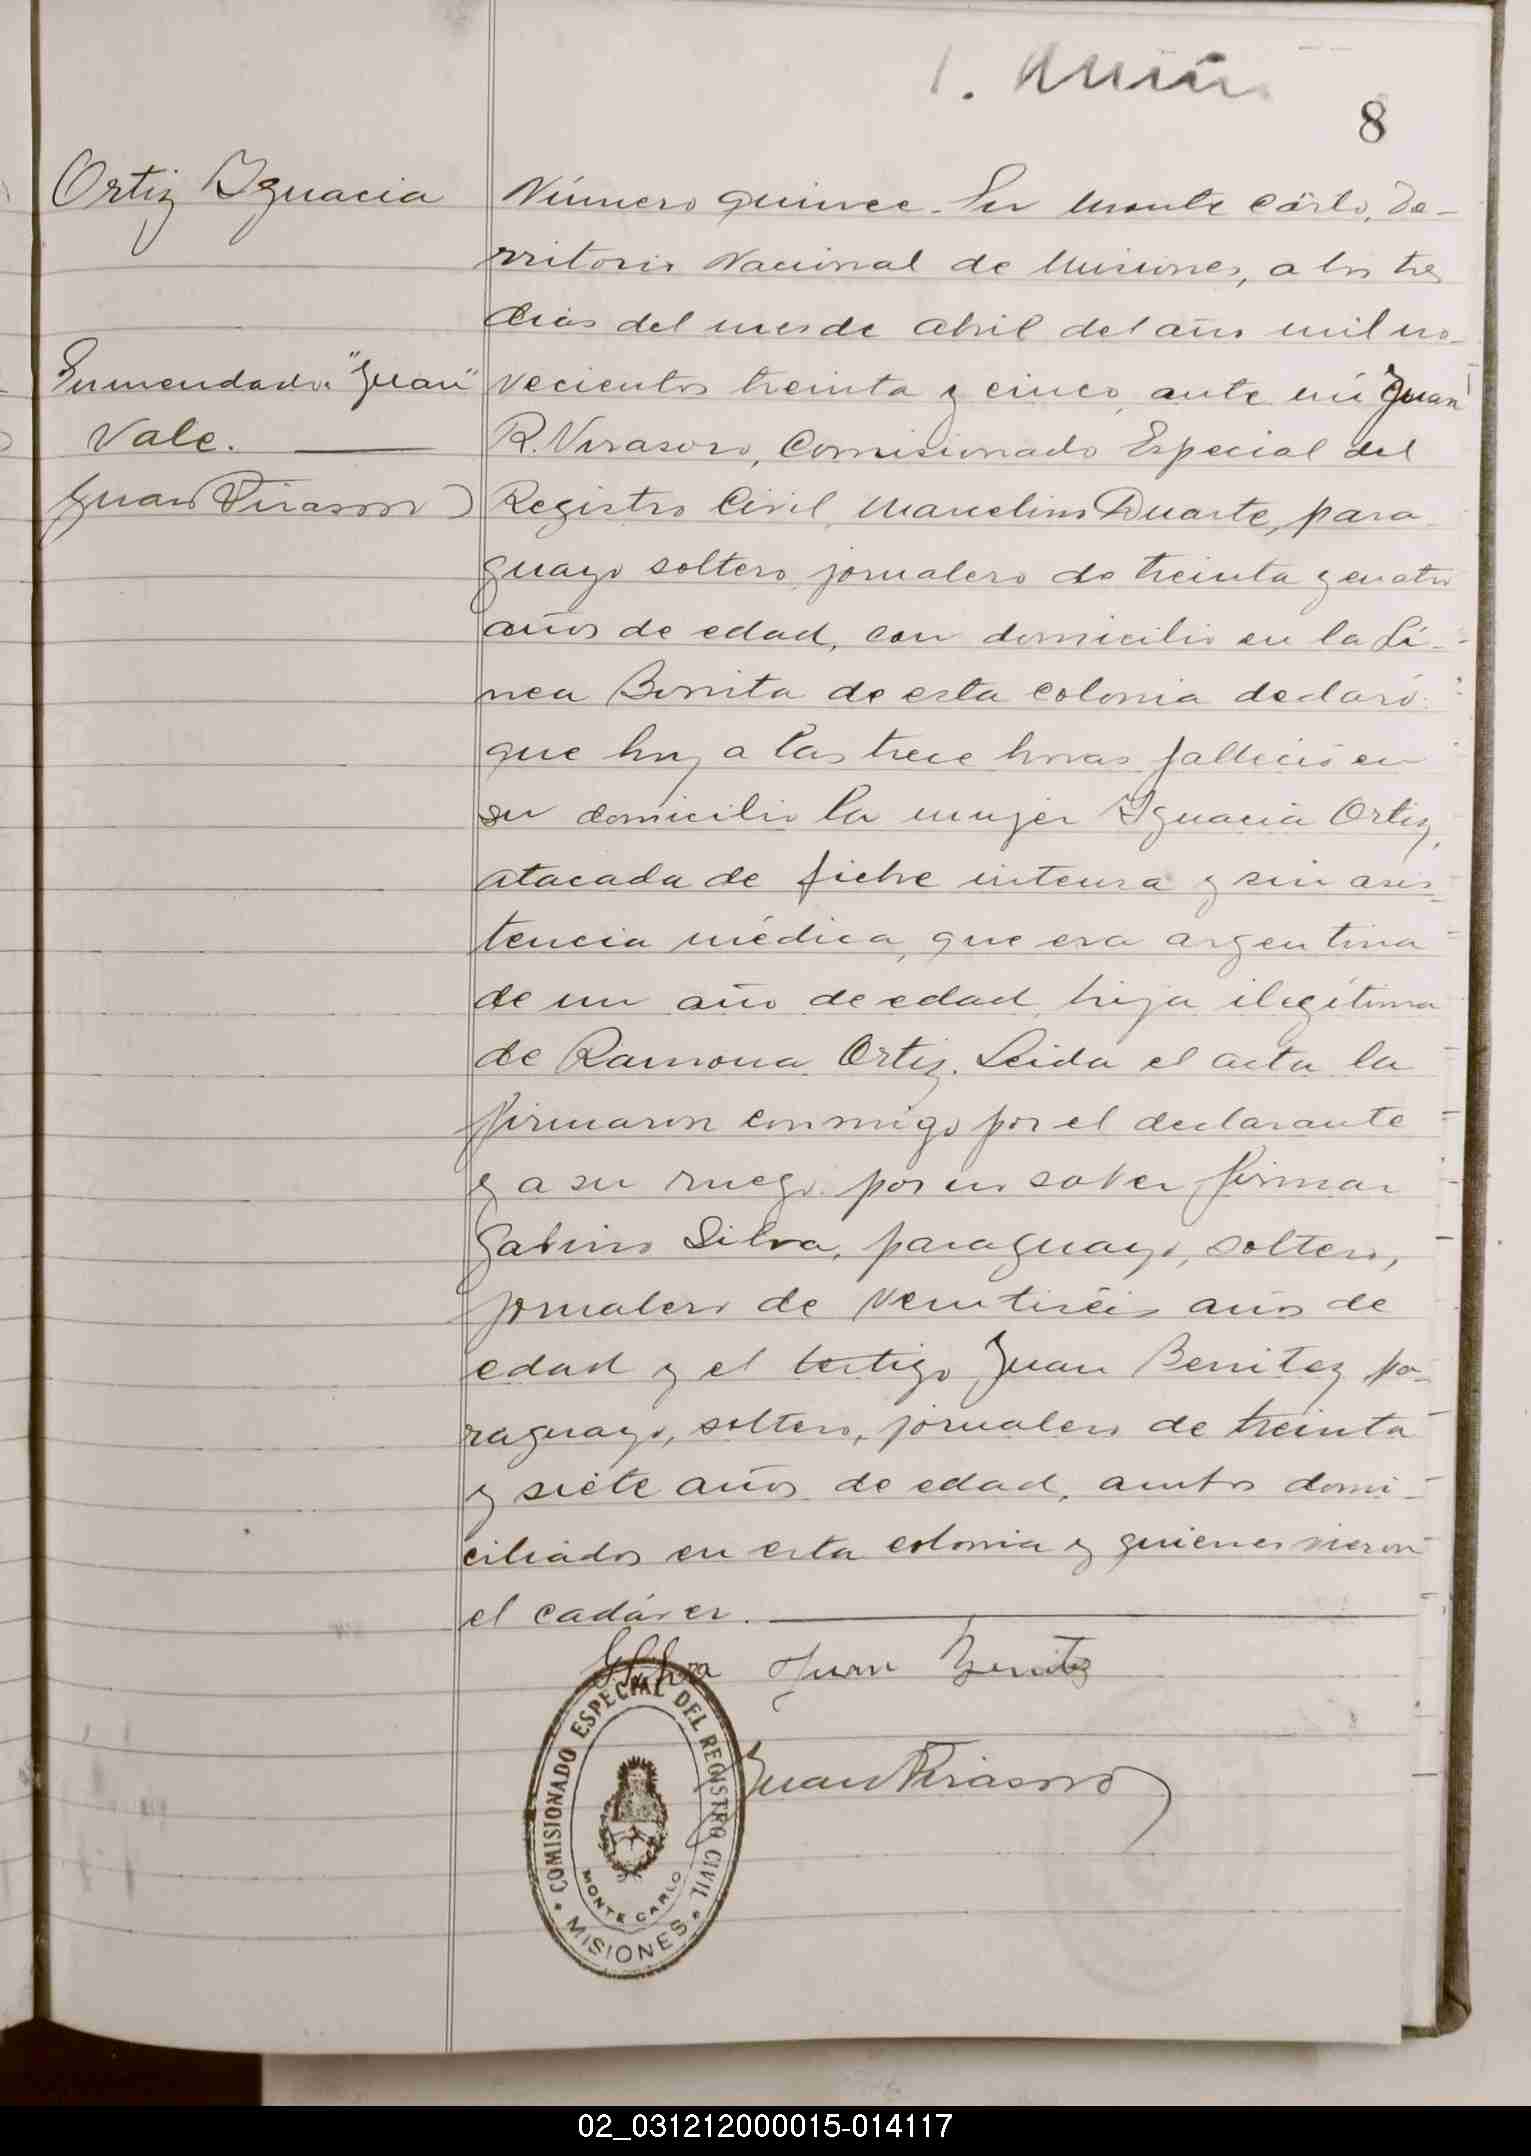 8
Ortiz Ignacia
Enmendado: "Juan"
Vale.
Juan Virasoro
Número quince. En Monte Cárlo, Te-
rritorio Nacional de Misiones, a los tres
dias del mes de abril del año mil no-
vecientos treinta y cinco, ante mí Juan
R. Virasoro, Comisionado Especial del
Registro Civil, Marcelino Duarte, para-
guayo soltero jornalero de treinta y cuatro
años de edad, con domicilio en la Lí-
nea Bonita de esta colonia declaró:
que hoy a las trece horas falleció en
su domicilio la mujer Ignacia Ortiz,
atacada de fiebre intensa y sin asis-
tencia médica, que era argentina
de un año de edad, hija ilegítima
de Ramona Ortiz. Leida el acta la
firmaron conmigo por el declarante
y a su ruego por no saber firmar
Gabino Silva, paraguayo, soltero,
jornalero de veintiséis años de
edad y el testigo Juan Benitez pa-
raguayo, soltero, jornalero de treinta
y siete años de edad, ambos domi-
ciliados en esta colonia y quienes vieron
el cadáver.
G Silva Juan Benitez
Juan Virasoro
COMISIONADO ESPECIAL DEL REGISTRO CIVIL
MONTE CARLO
MISIONES
02_031212000015-014117